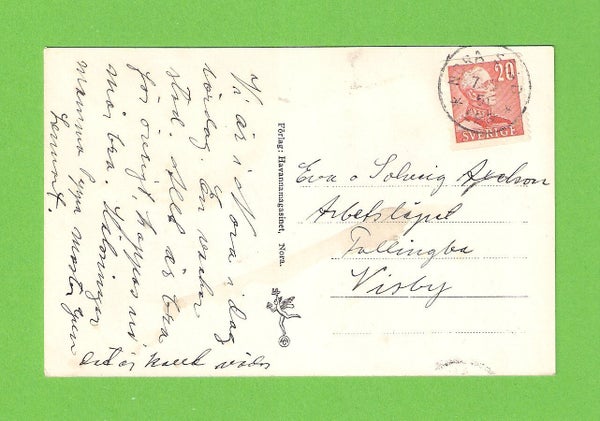 Vi är i Nora i dag
lördag. En vacker
stad. Allt är bra
för övrigt, hoppas ni
mår bra. Hälsningar
mamma Pappa moster
Lennart.
Det är kallt väder
Förlag: Havannamagasinet, Nora.
NORA
20
SVERIGE
Eva o Solveig Axelson
Arbetslägret
Follingbo
Visby